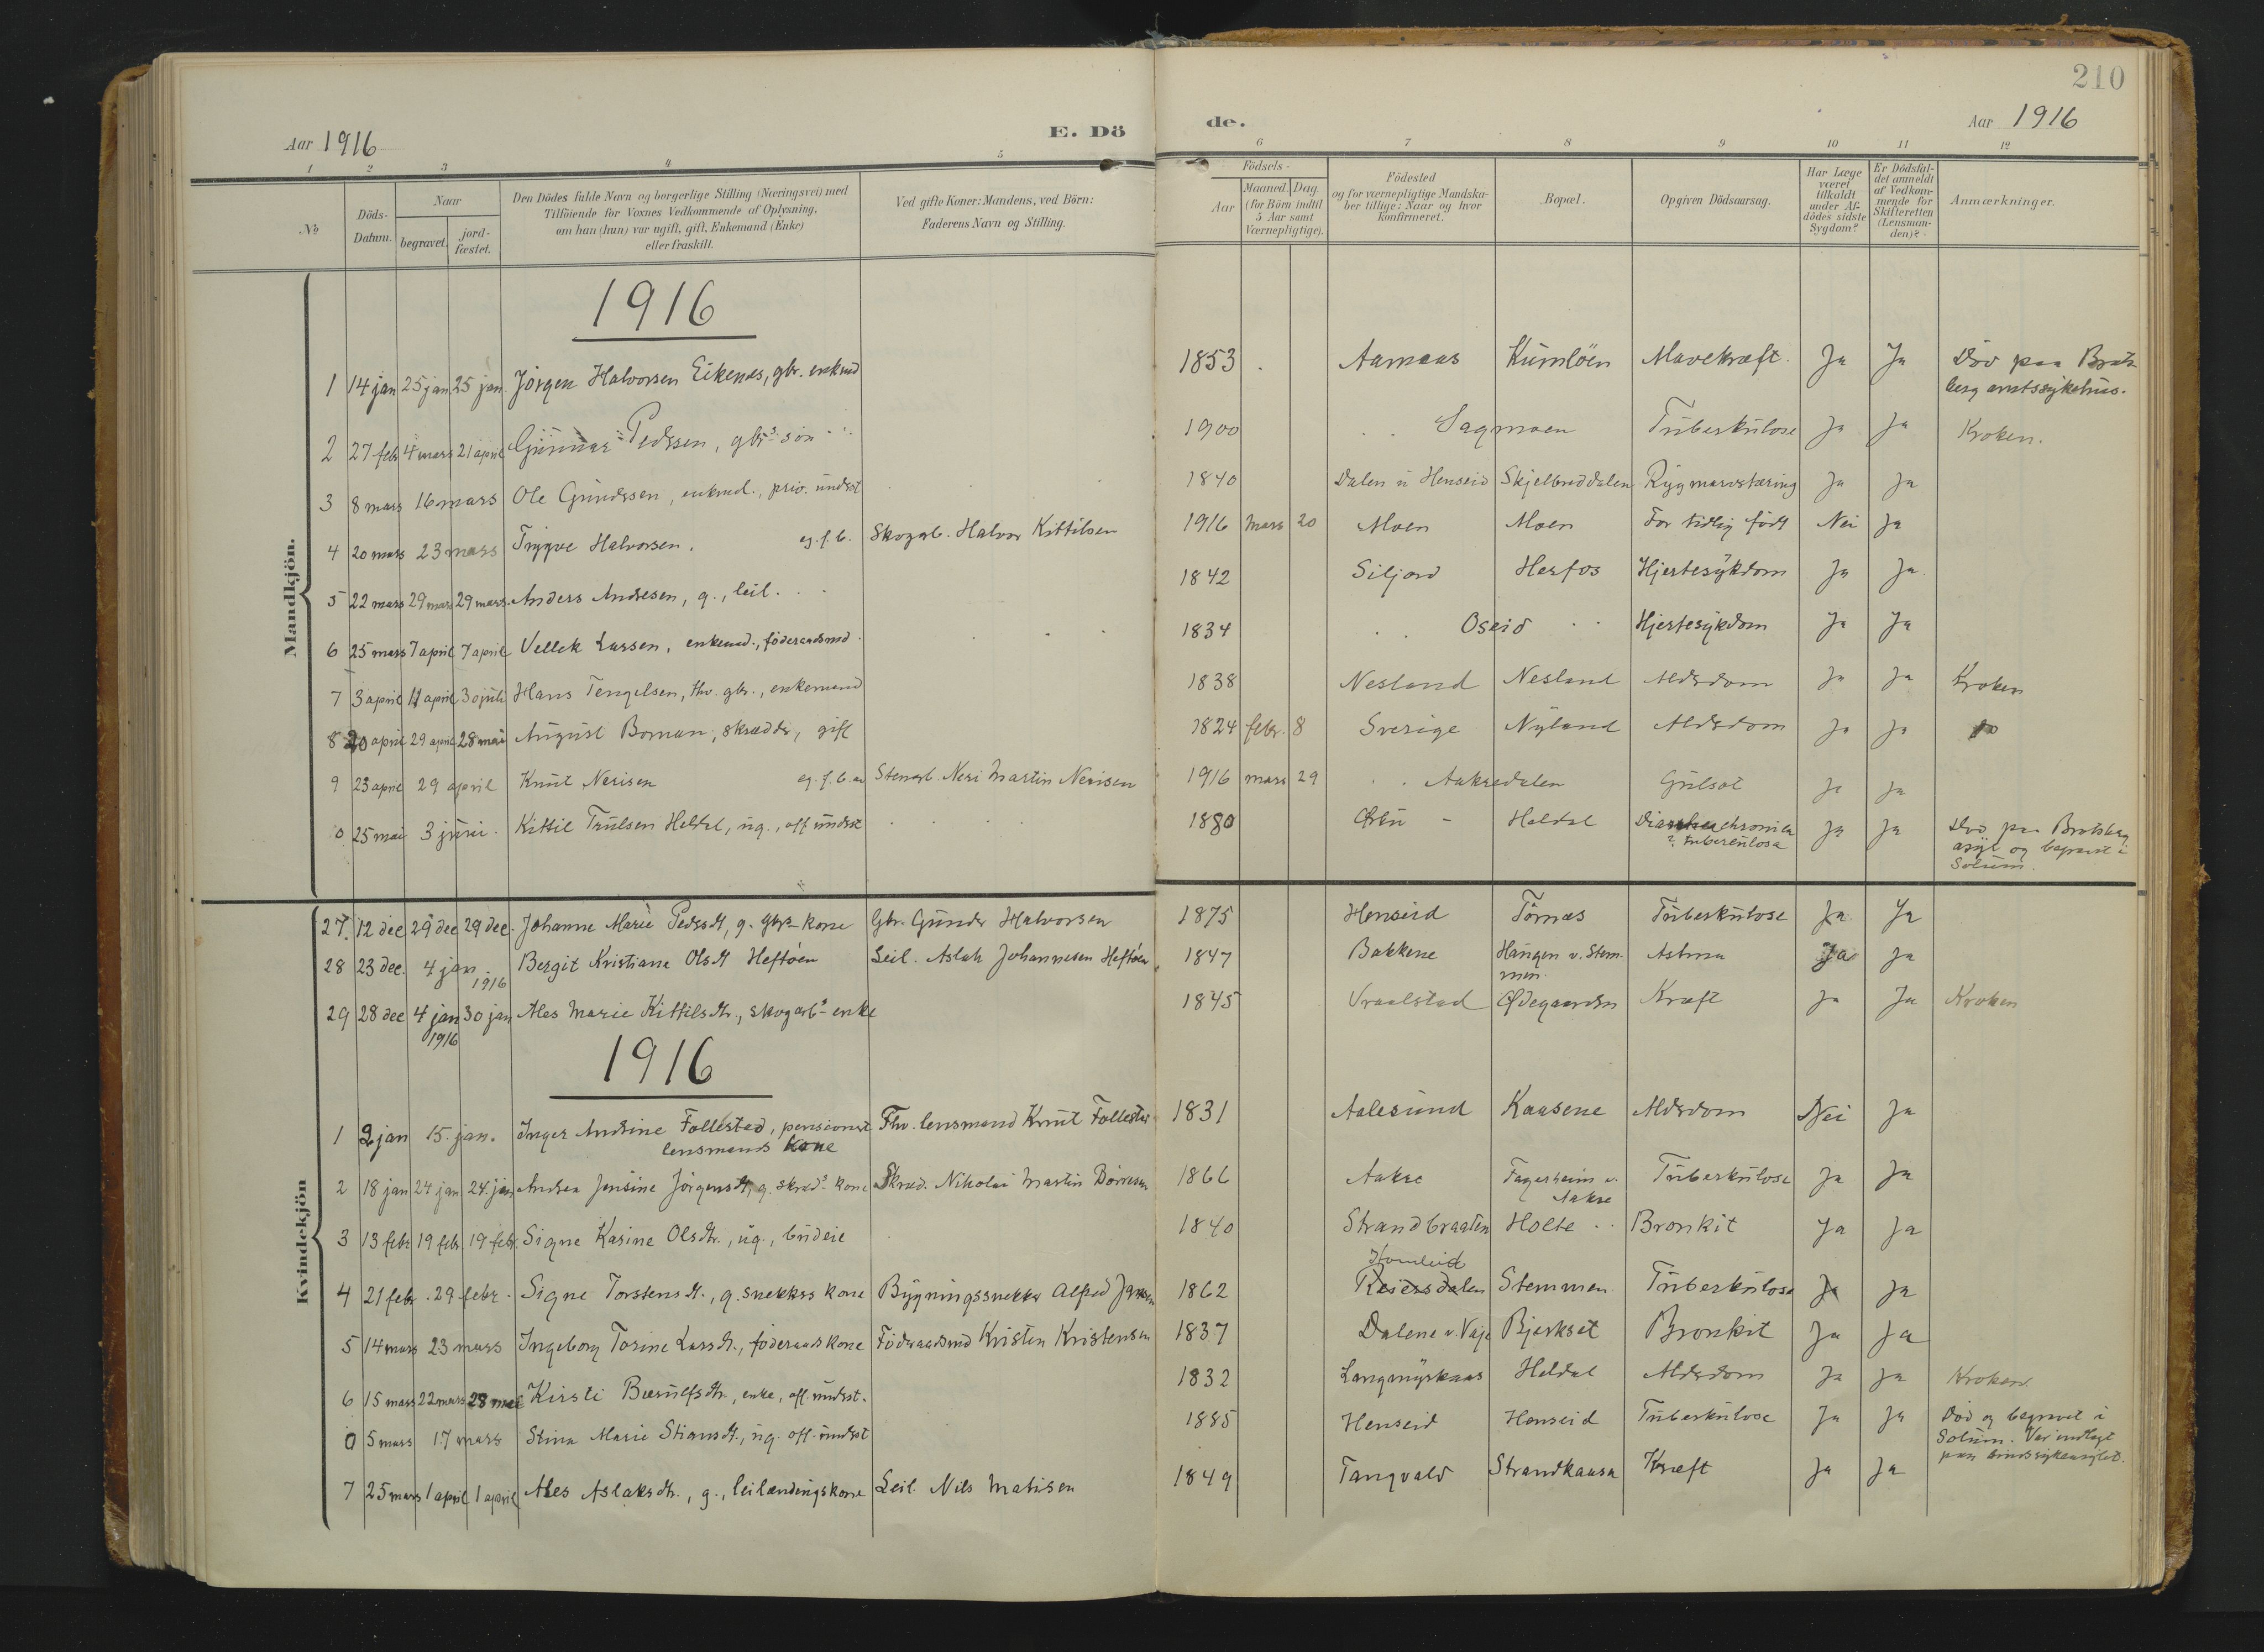 210
Aar 1916 E. Dö de. Aar 1916
1 2 3 4 5 6 7 8 9 10 11 12
No
Döds-Datum.
Naar
begravet. jord-fæstet.
Den Dödes fulde Navn og borgerlige Stilling (Næringsvei) med
Tilföiende for Voxnes Vedkommende af Oplysning,
om han (hun) var ugift, gift, Enkemand (Enke)
eller fraskilt.
Ved gifte Koner: Mandens, ved Börn:
Faderens Navn og Stilling.
Födsels-
Aar
Maaned. Dag.
(for Börn indtil
5 Aar samt
Værnepligtige).
Födested
og for værnepligtige Mandska-
ber tillige: Naar og hvor
konfirmeret.
Bopæl.
Opgiven Dödsaarsag.
Har Læge
været
tilkaldt
under Af-
dödes sidste
Sygdom?
Er Dödsfal-
det anmeldt
af Vedkom-
mende for
Skifteretten
(Lensman-
den)?
Anmærkninger.
Mandkjön.
1916
1 14 jan 25 jan 25 jan Jörgen Halvorsen Eikenes, gbr. enkmd 1853 Aarnaas Kumlöen Mavekræft. Ja Ja Död paa Bratsberg amtssykehus.
2 27 febr 4 mars 21 april Gunnar Pedersen, gbrs sön 1900 Sagmoen Tuberkulose Ja Ja Kroken.
3 8 mars 16 mars Ole Gundersen, enkmd., priv. underst 1840 Dalen u Henseid Skjelbreddalen Rygmarvstæring Ja Ja
4 20 mars 23 mars Trygve Halvorsen. eg. f. b. Skogarb. Halvor Kittilsen 1916 mars 20 Moen Moen For tidlig födt Nei Ja
5 22 mars 29 mars 29 mars Anders Andresen, g., leil. 1842 Siljord Herfos Hjertesykdom Ja Ja
6 25 mars 7 april 7 april Vellek Larsen, enkemd., föderaadsmd 1834 Oseid Hjertesykdom Ja Ja
7 3 april 11 april 30 juli Hans Tengelsen, fhv. gbr., enkemand 1838 Nesland Nesland Alderdom Ja Ja Kroken
8 20 april 29 april 28 mai August Boman, skrædder, gift 1824 febr. 8 Sverige Nyland Alderdom Ja Ja do
9 23 april 29 april Knut Nerisen eg. f. b. Stenarb. Neri Martin Nerisen 1916 mars 29 Aakredalen Gulsot Ja Ja
0 25 mai 3 juni. Kittil Trulsen Heldal, ug., off underst 1880 Heldal chronica tuberculosa Ja Ja Död paa Bratsberg asyl og begravet i Solum.
Kvindekjön
27. 12 dec 29 dec 29 dec. Johanne Marie Pedersdt, g. gbrs kone Gbr. Gunder Halvorsen 1875 Henseid Törnes Tuberkulose Ja Ja
28 23 dec. 4 jan 1916 Bergit Kristiane Olsdt Heftöen Leil. Aslak Johannesen Heftöen 1847 Bakkene Haugen v. Stemmen. Astma Ja Ja
29 28 dec 4 jan 1916 30 jan Ales Marie Kittilsdtr., skogarbs enke 1845 Vraalstad Ødegaarden Kræft Ja Ja Kroken
1916
1 2 jan 15. jan. Inger Andrine Follestad, pensionert lensmands kone Fhv. lensmand Knut Follestad 1831 Aalesund Kaasene Alderdom Nei Ja
2 18 jan 24 jan 24. jan Andrea Jensine Jörgensdt, g. skrads kone Skrad. Nikolai Martin Dörresen 1866 Aakre Fagerheim v. Aakre Tuberkulose Ja Ja
3 13 febr 19 febr. 19 febr. Signe Karine Olsdtr., ug., budeie 1840 Strandbraaten Holte Bronkit Ja Ja
4 21 febr. 29. febr. Signe Torstensdt., g. snekkers kone Bygningssnekker Alfred Jansen 1862 Reiersdalen Stemmen Tuberkulose Ja Ja
5 14 mars 23 mars Ingeborg Torine Larsdt., föderaadskone Föderaadsmd Kristen Kristensen 1837 Dalene v. Vaje Bjerkset Bronkit Ja Ja
6 15 mars 22 mars 28 mai Kirsti Bærulfsdtr., enke, off. underst. 1832 Langmyrkaas Heldal Alderdom Ja Ja Kroken
0 5 mars 17 mars Stina Marie Stiansdt., ug. off. underst 1885 Henseid Henseid Tuberkulose Ja Ja Död og begravet i Solum. Var indlagt paa sindssykeasylet.
7 25 mars 1 april 1 april Ales Aslaksdtr., g., leilændingskone Leil. Nils Matisen 1849 Tangvald Strandkaasa Kræft Ja Ja